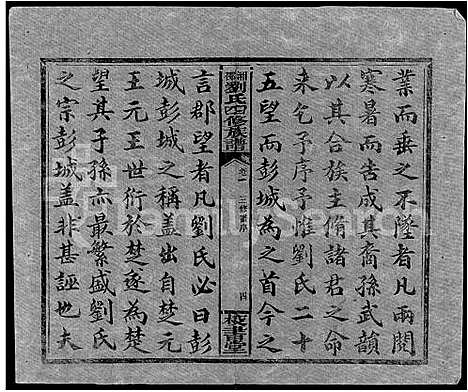 業而垂之不墜者凡兩閱
寒暑而告成其裔孫武韻
以其合族主脩諸君之命
來乞予序予惟劉氏二十
五望而彭城為之首今之
劉氏四修族譜
卷一 三修舊序
四
藜書堂
言郡望者凡劉氏必曰彭
城彭城之稱蓋出自楚元
王元王世衍於楚遂為楚
望其子孫亦最繁盛劉氏
之宗彭城蓋非甚誣也夫
FamilySearch